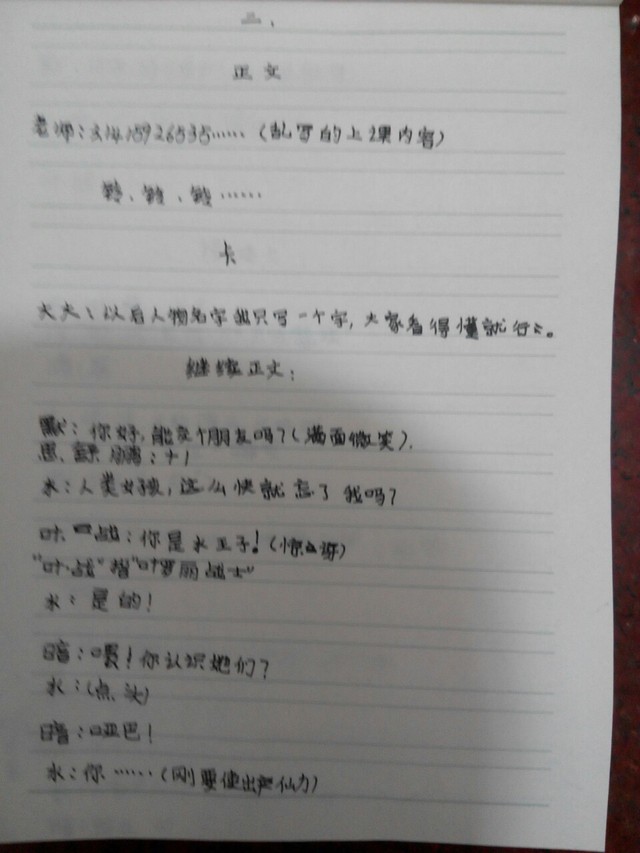 二、
正文
老师:31415926535……(乱写的上课内容)
铃、铃、铃……
卡
大大:以后人物名字我只写一个字,大家看得懂就行了。
继续正文:
默:你好,能交个朋友吗?(满面微笑)
思、:+1
水:人类女孩,这么快就忘了我吗?
叶战:你是水王子!(惊讶)
“叶战”指“叶罗丽战士”
水:是的!
暗:喂!你认识她们?
水:(点头)
暗:哑巴!
水:你……(刚要使出仙力)